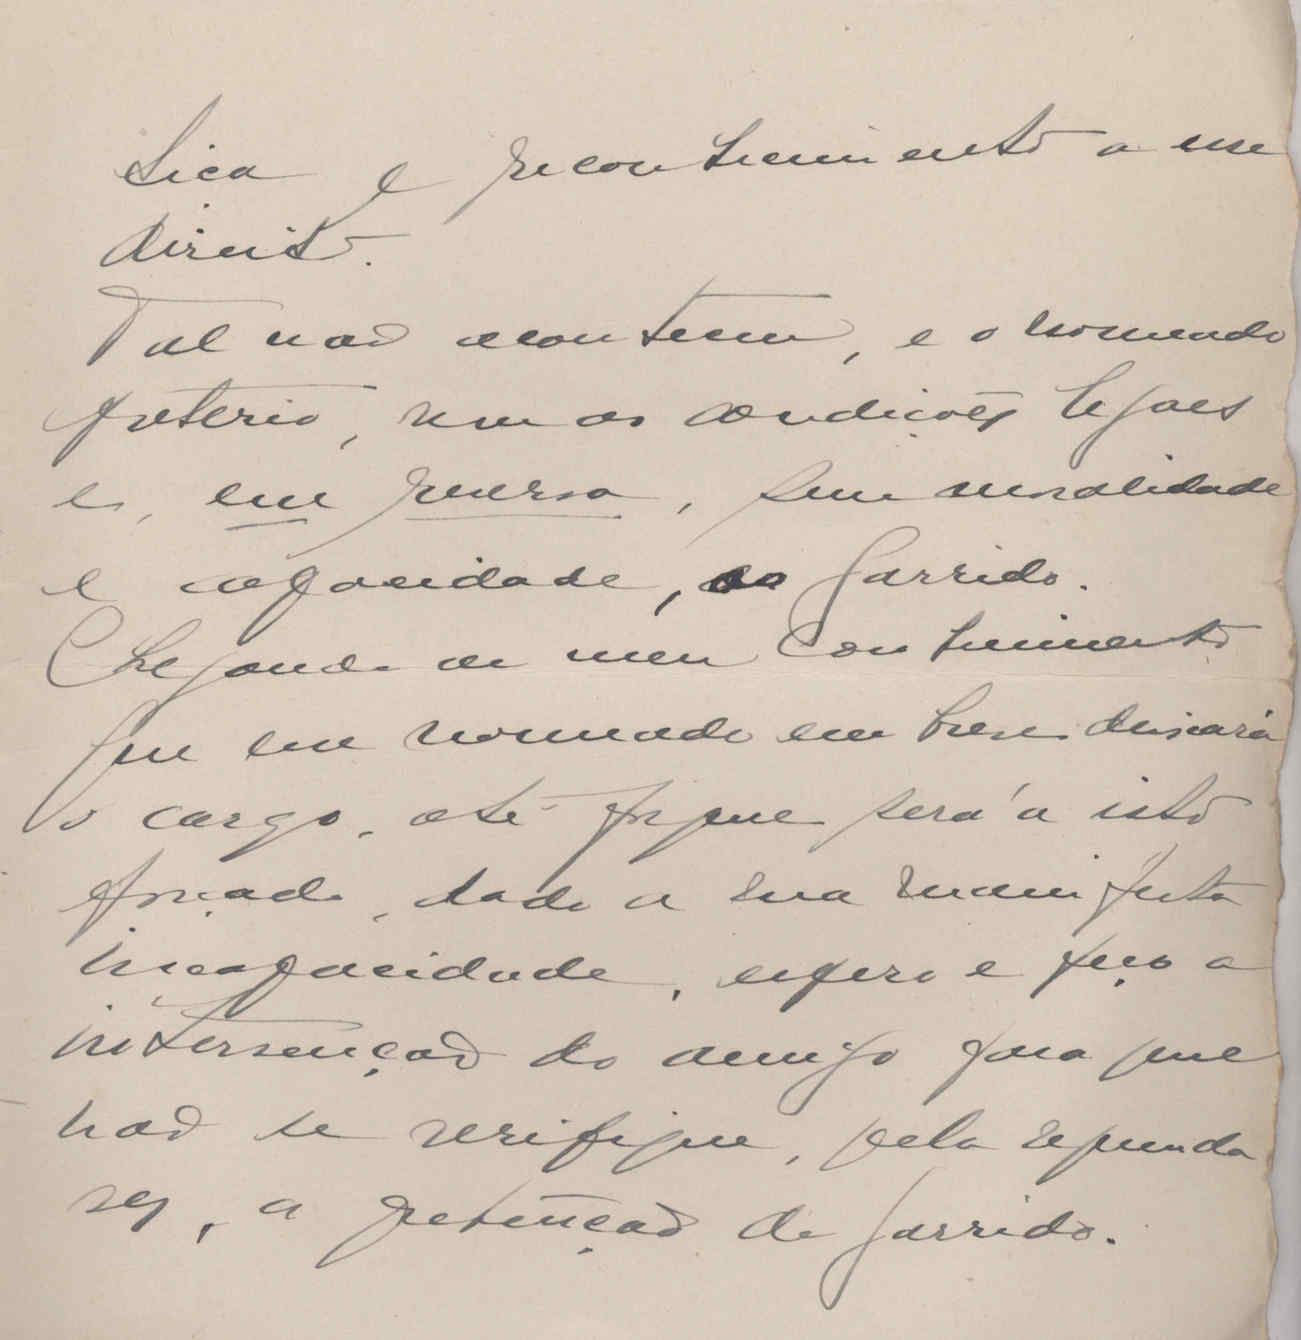 tiça e reconhecimento a um
direito.
Tal não aconteceu, e o nomeado
preterio, sem as condições legaes
e, em
, sem moralidade
e capacidade, ao Garrido.
Chegando ao meu conhecimento
que em nomeado em breve deixará
o cargo, até porque será a isto
forçado, dado a sua manifesta
incapacidade, espero e peço a
intervenção do amigo para que
não se verifique, pela segunda
vez, a pretenção de Garrido.